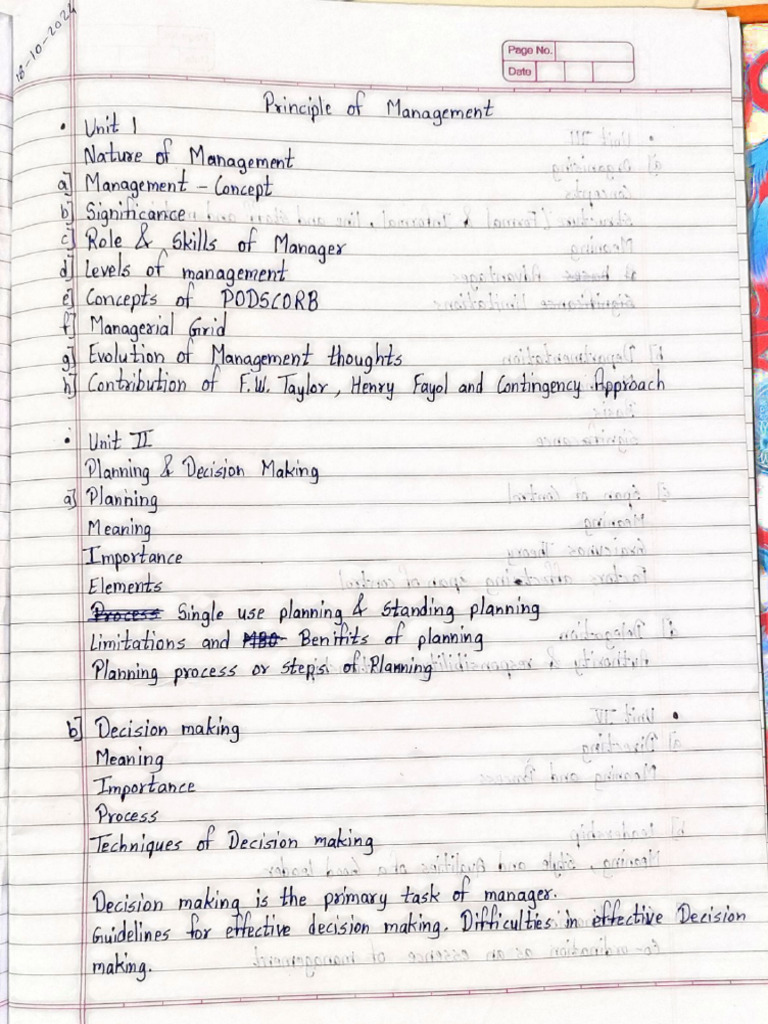 18-10-2024
Page No.
Date
Principle of Management
• Unit 1
Nature of Management
a] Management - Concept
b] Significance
c] Role & Skills of Manager
d] Levels of management
e] Concepts of PODSCORB
f] Managerial Grid
g] Evolution of Management thoughts
h] Contribution of F.W. Taylor, Henry Fayol and Contingency Approach
• Unit II
Planning & Decision Making
a] Planning
Meaning
Importance
Elements
Process Single use planning & Standing planning
Limitations and MBO Benifits of planning
Planning process or steps of Planning
b] Decision making
Meaning
Importance
Process
Techniques of Decision making
Decision making is the primary task of manager.
Guidelines for effective decision making. Difficulties in effective Decision
making.